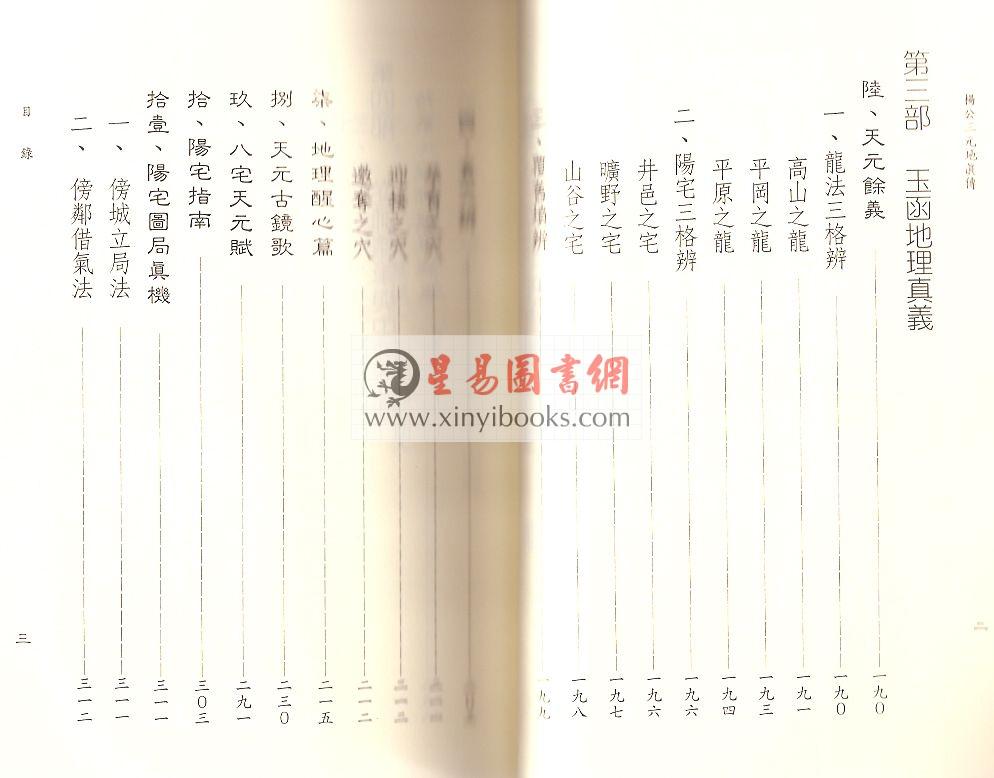 楊公三元地真傳
第三部 玉函地理真義
陸、天元餘義 一九0
一、龍法三格辨 一九0
高山之龍 一九一
平岡之龍 一九三
平原之龍 一九四
二、陽宅三格辨 一九六
井邑之宅 一九六
曠野之宅 一九七
山谷之宅 一九八
一九九
二
之穴
之穴
邀奪之穴 二一二
柒、地理醒心篇 二一五
捌、天元古鏡歌 二三0
玖、八宅天元賦 二九一
拾、陽宅指南 三0三
拾壹、陽宅圖局眞機 三一一
一、傍城立局法 三一一
二、傍鄰借氣法 三一二
目錄
三
星易圖書網
www.xinyibooks.com